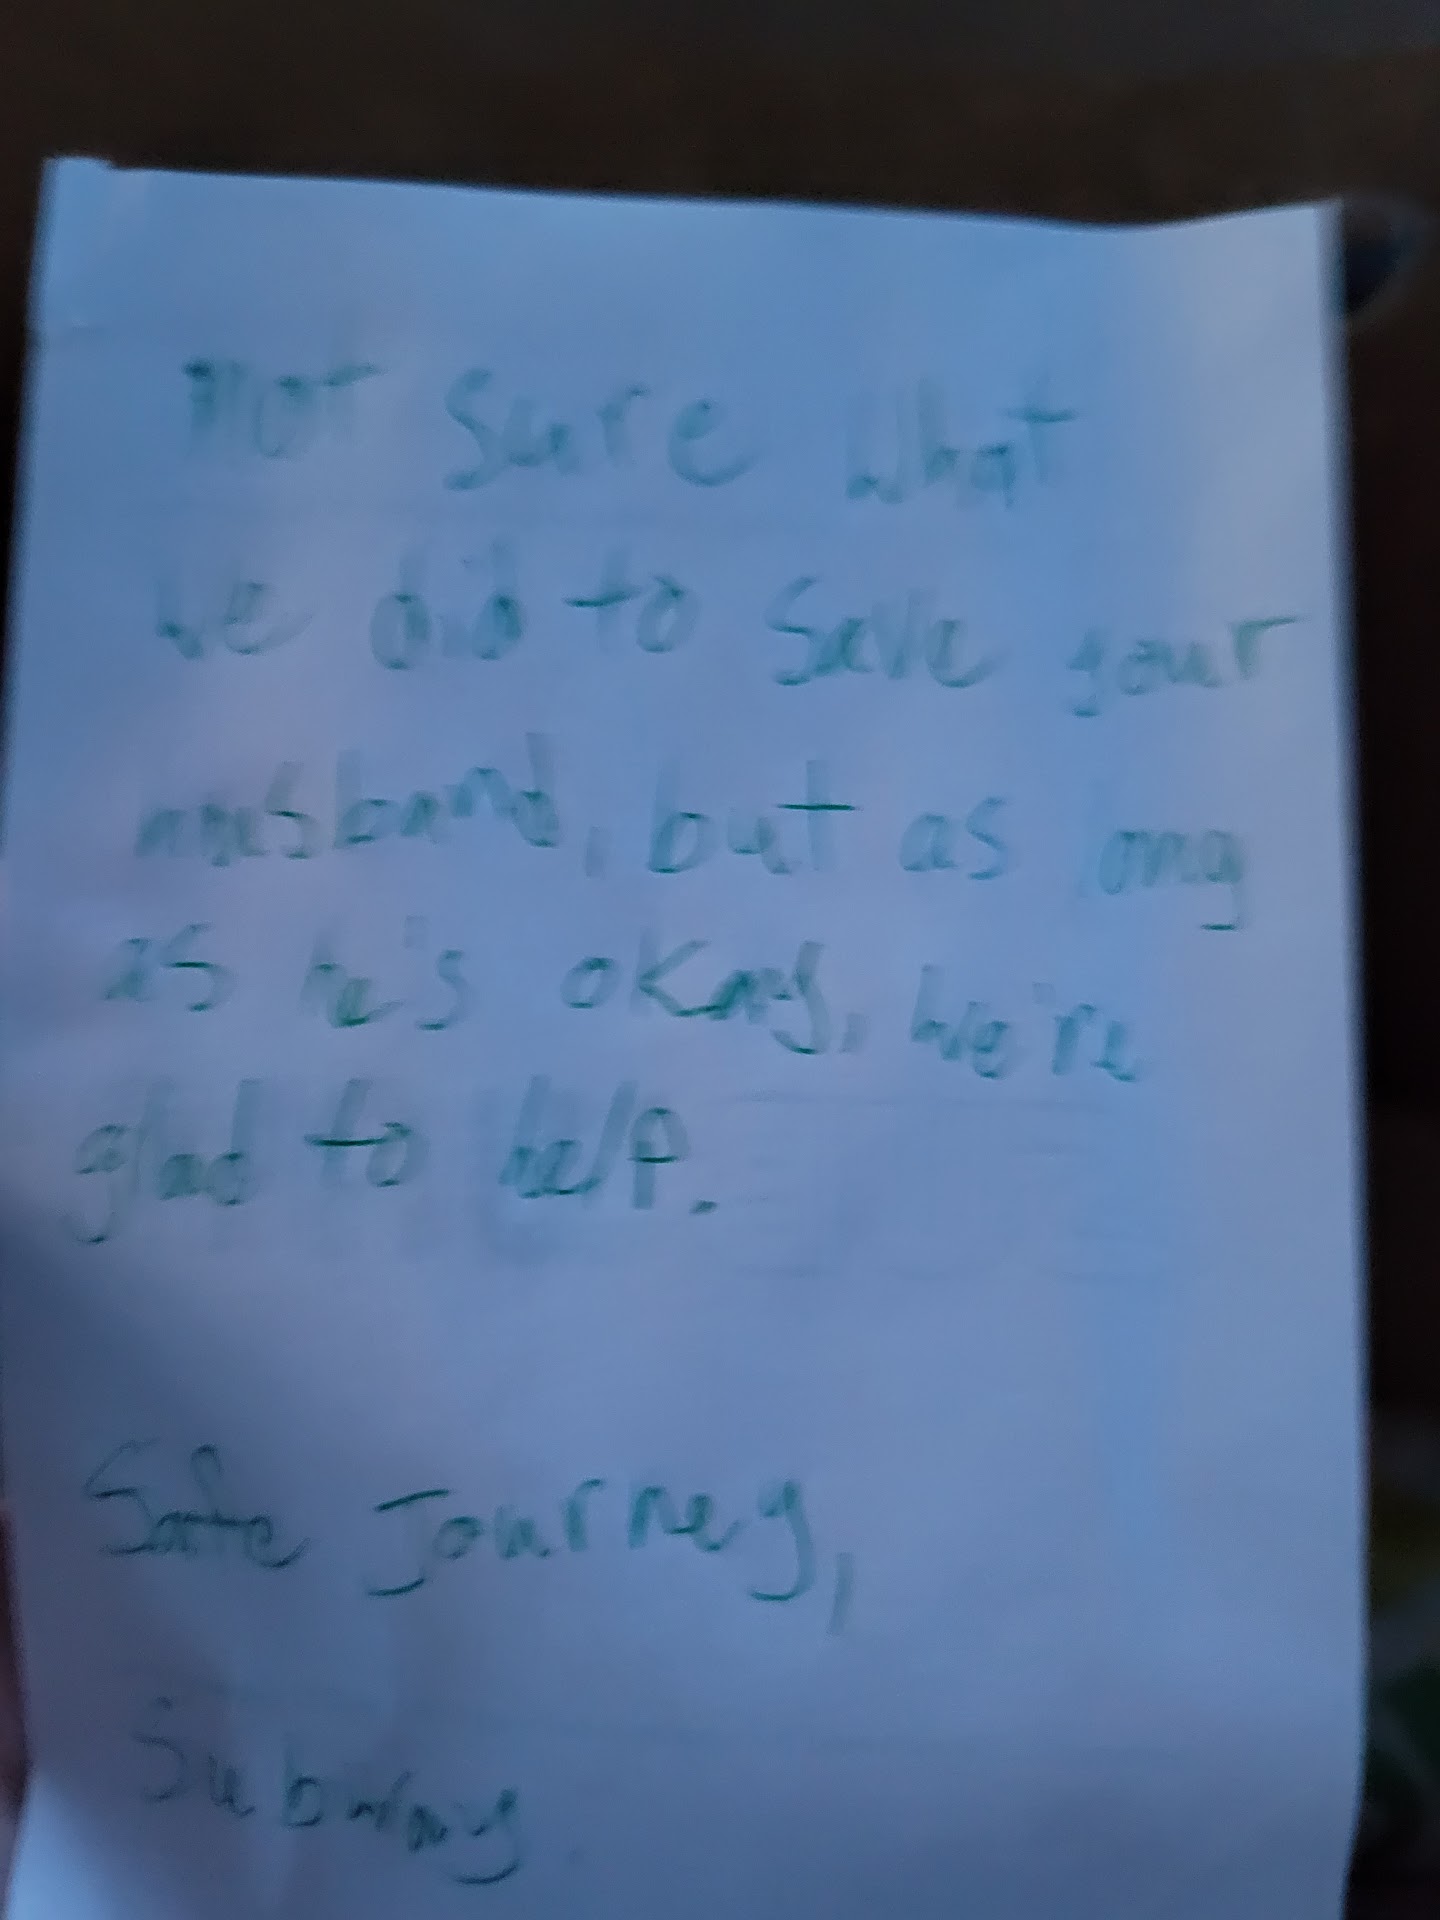 Not sure what
we did to save your
husband, but as long
as he's okay, we're
glad to help.
Safe Journey,
Subway